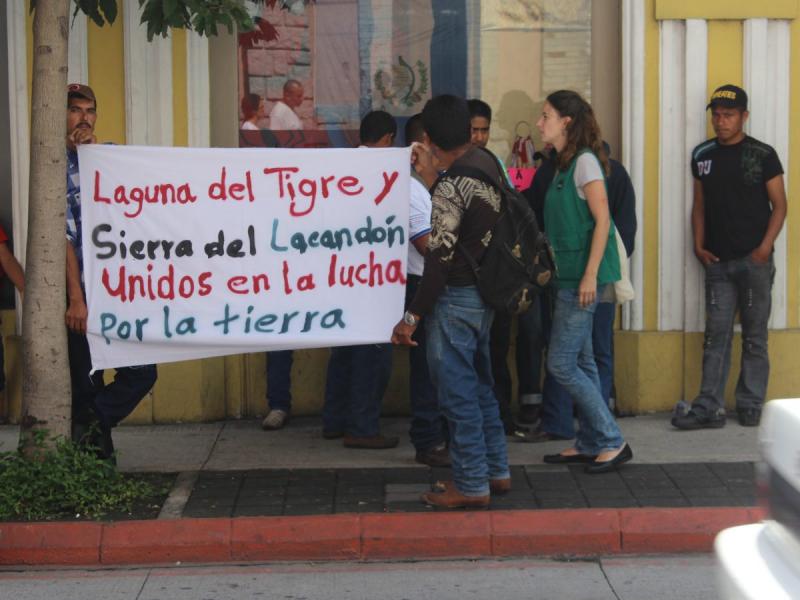 Laguna del Tigre y
Sierra del Lacandón
Unidos en la lucha
Por la tierra
A
DU